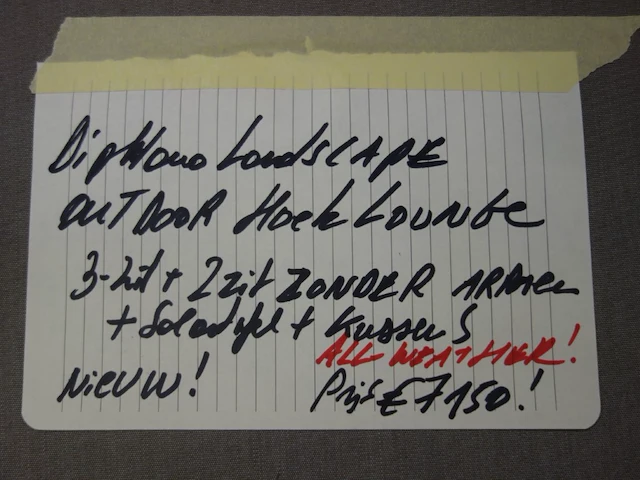 Diphano LANDSCAPE
OUTDOOR Hoek LOUNGE
3-zit + 2 zit ZONDER ARMEN
+ Salontafel + KUSSENS
ALL WEATHER!
NIEUW!
Prijs € 7150!